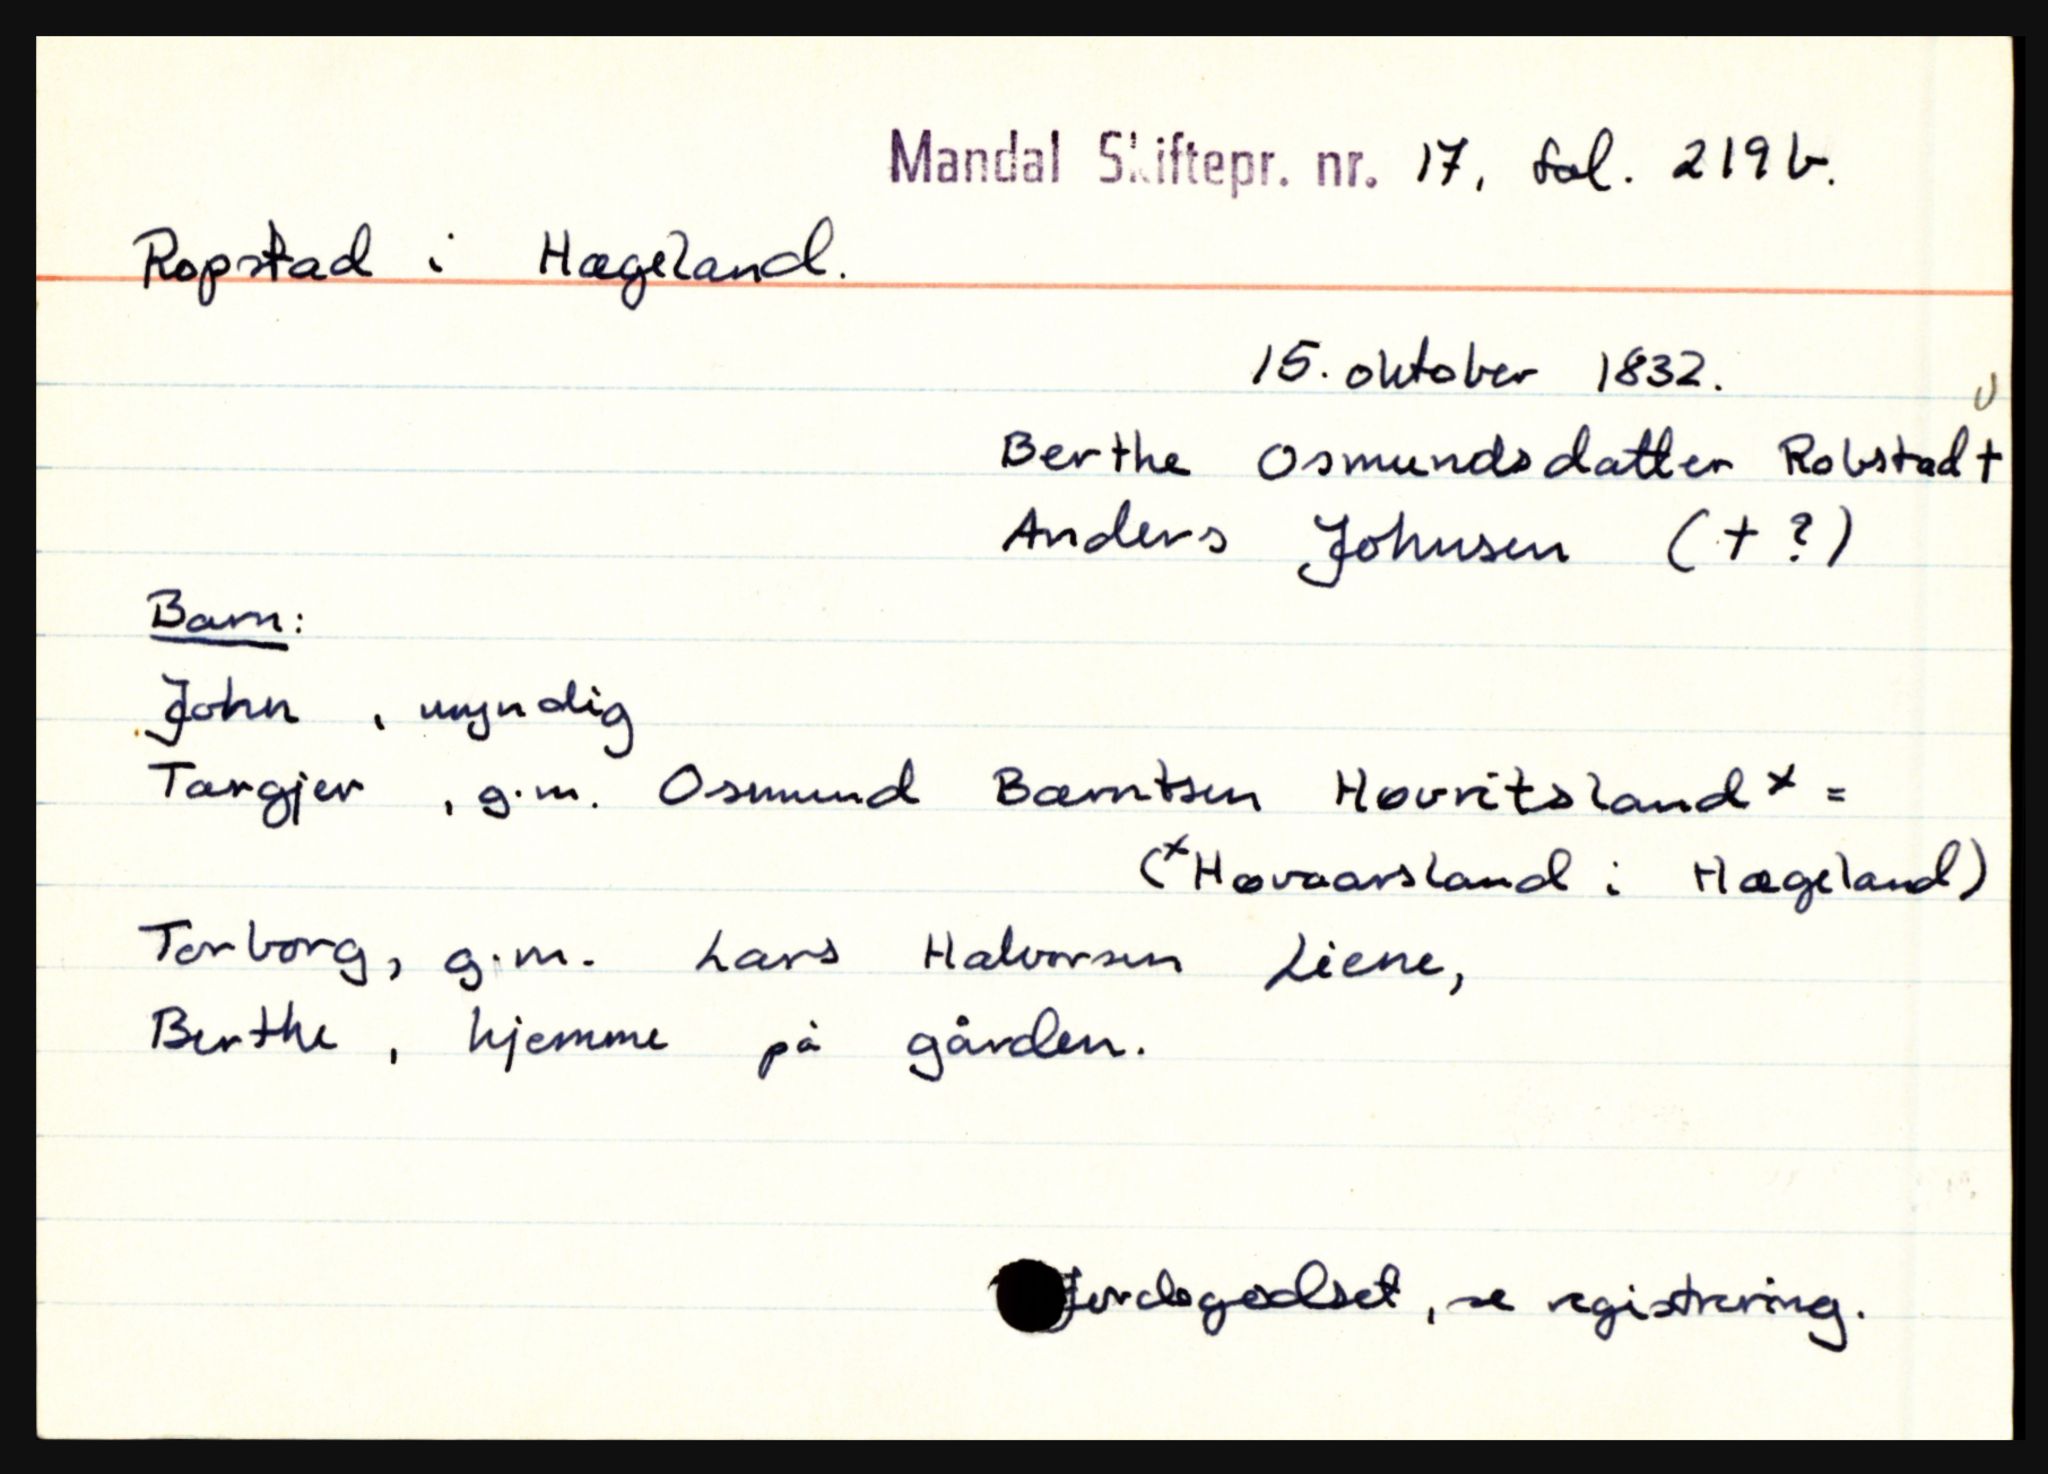 Mandal Skiftepr. nr. 17, fol. 219 b.
Ropstad i Hægeland.
15. oktober 1832.
Berthe Osmundsdatter Robstad †
Anders Johnsen († ?)
Barn:
John , umyndig
Targjer , g.m. Osmund Børntsen Høvritsland x =
(x Høvaarsland i Hægeland)
Torborg, g.m. Lars Halvorsen Liene,
Berthe , hjemme på gården.
Jordegodset , se registrering.